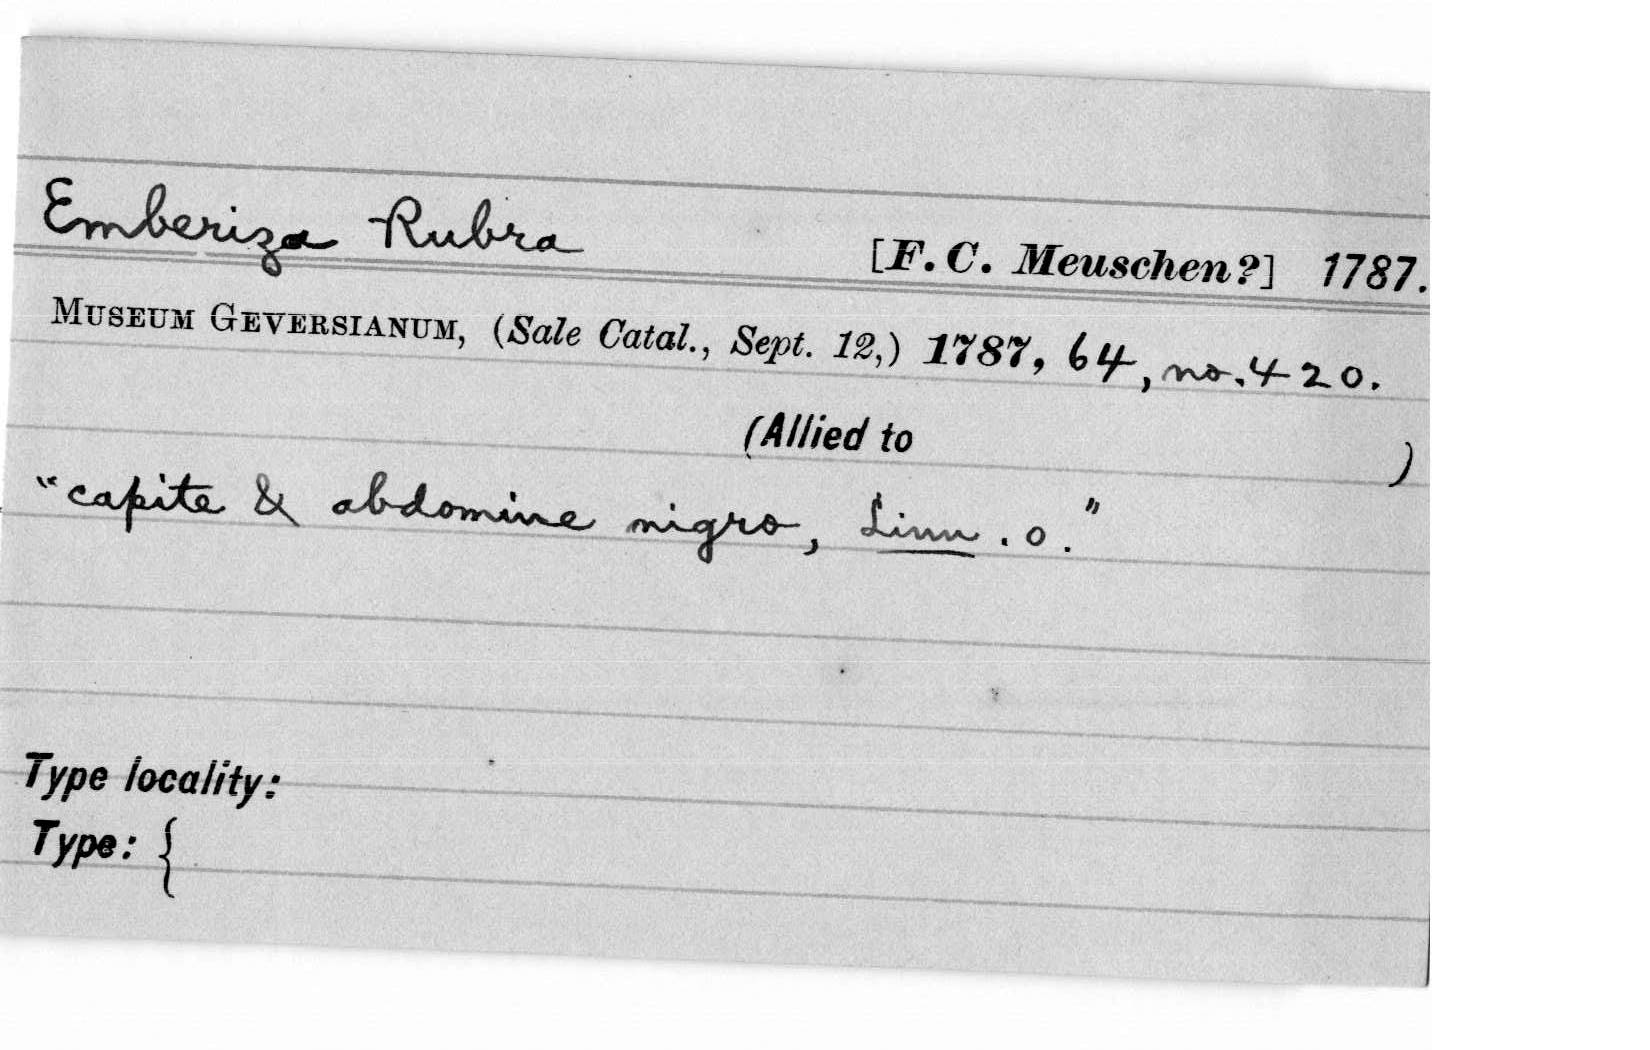 Emberiza Rubra [F. C. Meuschen?] 1787.
MUSEUM GEVERSIANUM, (Sale Catal., Sept. 12,) 1787, 64, no. 420.
(Allied to )
"capite & abdomine nigro, Linn. o."
Type locality:
Type: {